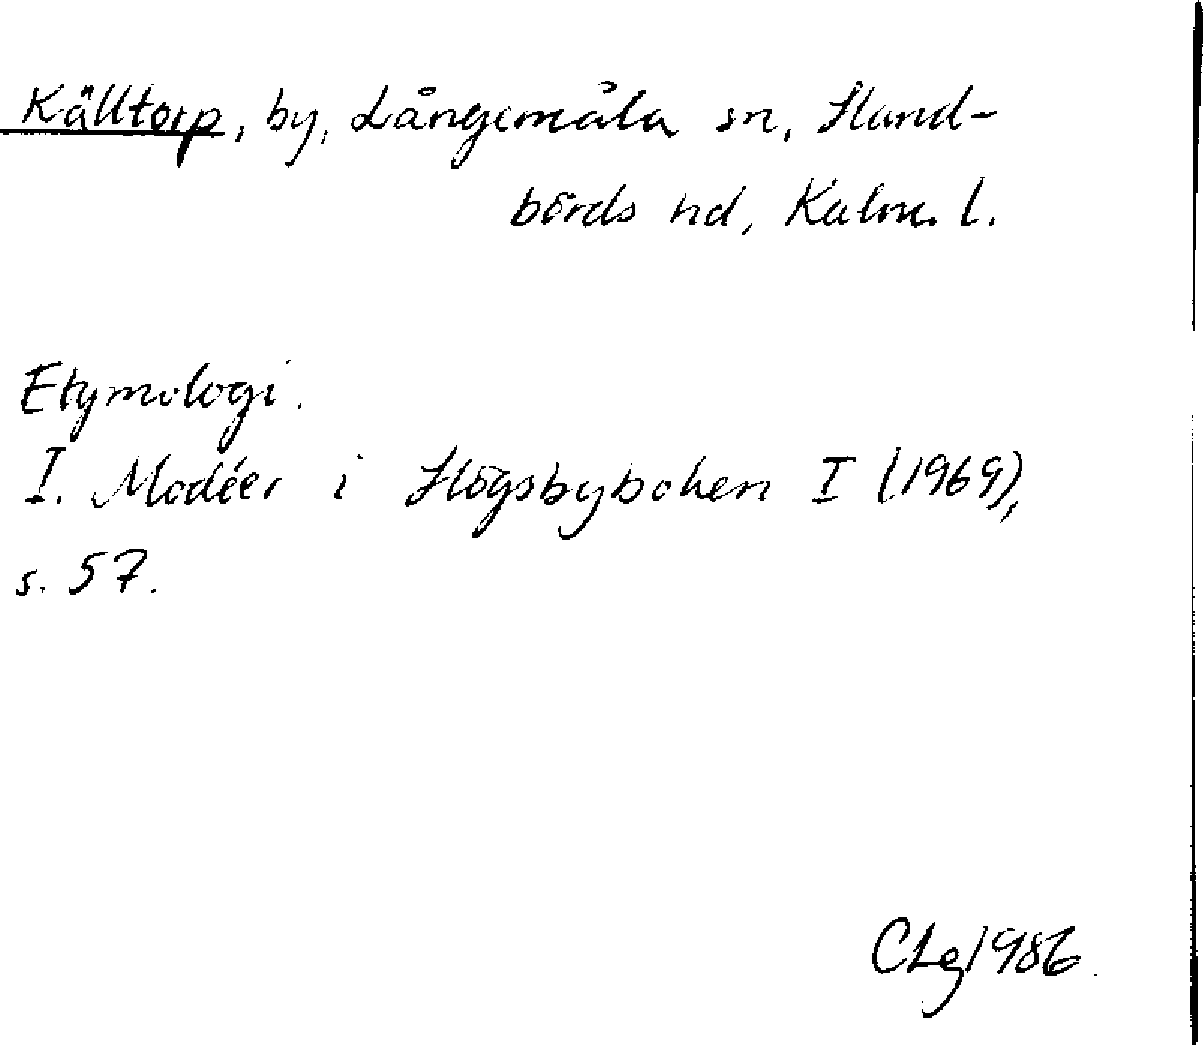 Källtorp, by, Långemåla sn, Hand-
börds hd, Kalm. l.
Etymologi.
I. Modéer i Högsbyboken I (1969),
s. 57.
CLg 1986.